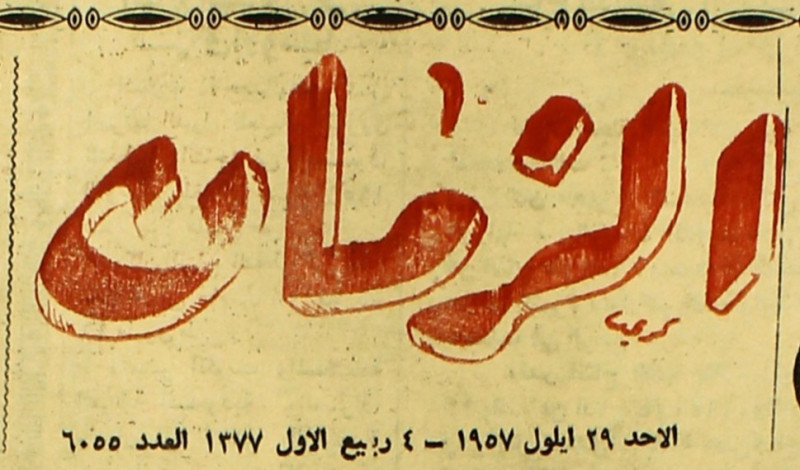 الزمان
الاحد ٢٩ ايلول ١٩٥٧ – ٤ ربيع الاول ١٣٧٧ العدد ٦٠٥٥